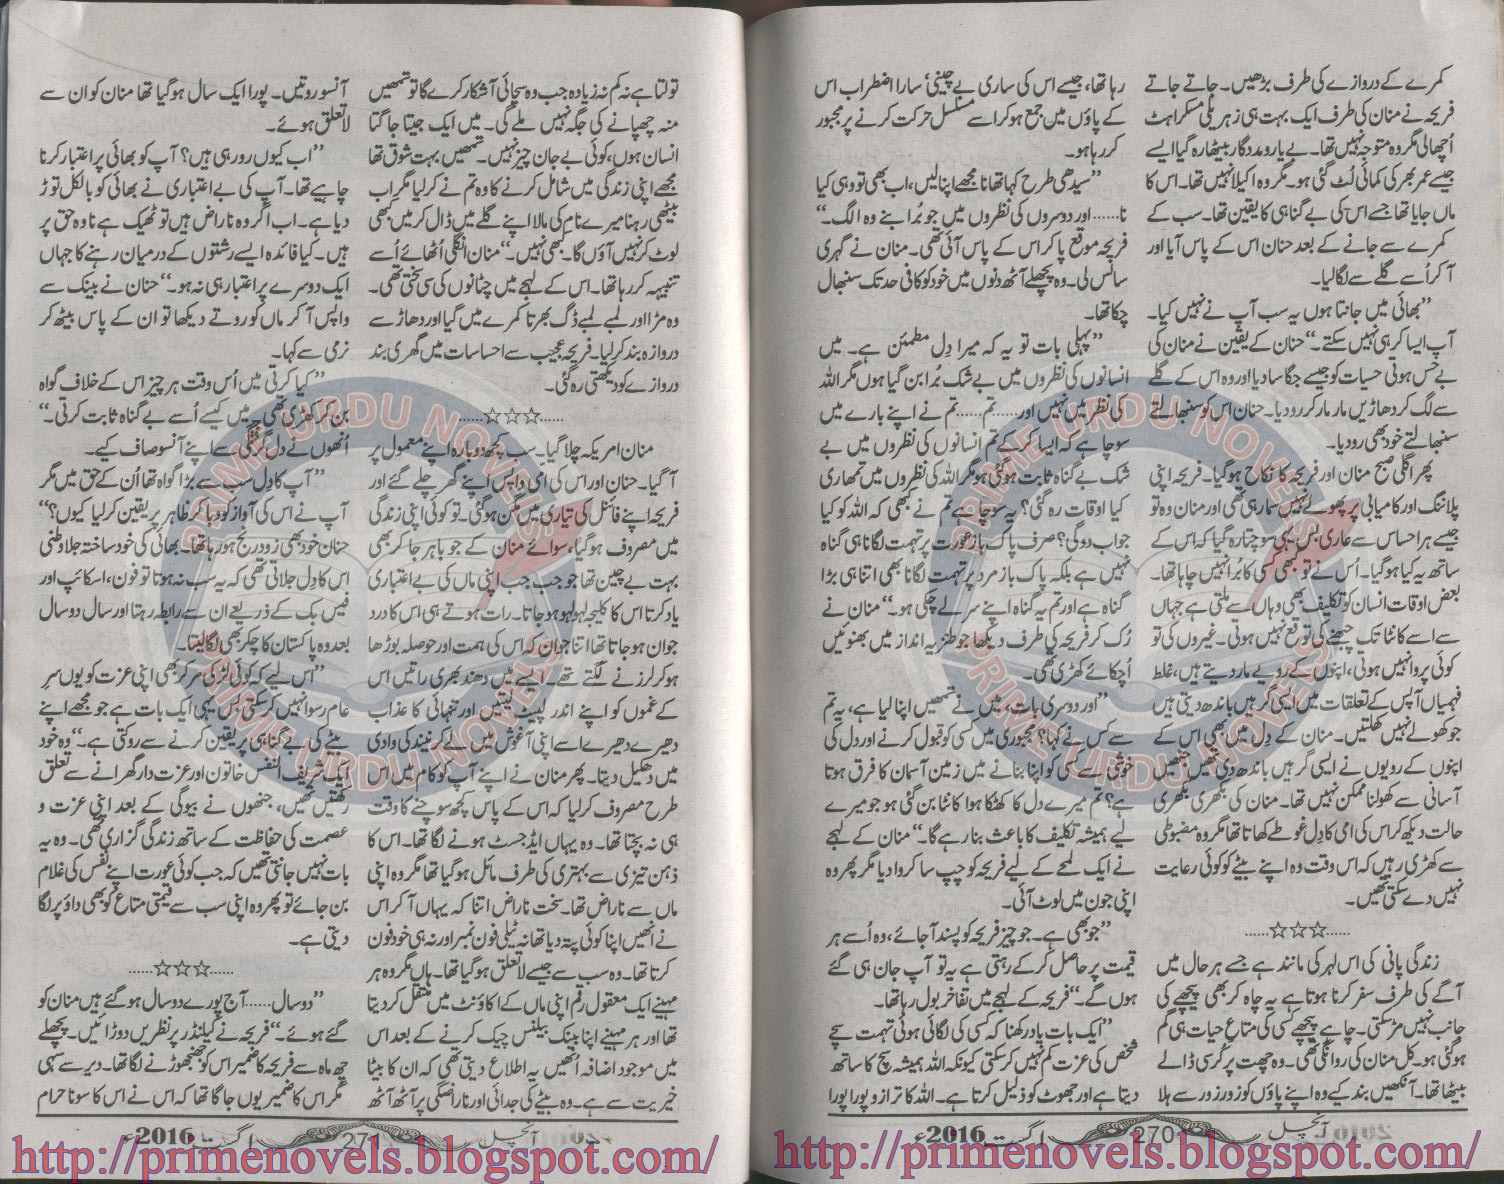 کمرے کے دروازے کی طرف بڑھیں۔ جاتے جاتے
فریحہ نے منان کی طرف ایک بہت ہی زہریلی مسکراہٹ
اُچھالی مگر وہ متوجہ نہیں تھا۔ بے یارو مددگار بیٹھا رہ گیا ایسے
جیسے عمر بھر کی کمائی لُٹ گئی ہو۔ مگر وہ اکیلا نہیں تھا۔ اس کا
ماں جایا تھا جسے اس کی بے گناہی کا یقین تھا۔ سب کے
کمرے سے جانے کے بعد حنان اس کے پاس آیا اور
آ کر اُسے گلے سے لگا لیا۔
”بھائی میں جانتا ہوں یہ سب آپ نے نہیں کیا۔
آپ ایسا کر ہی نہیں سکتے۔“ حنان کے یقین نے منان کی
بے حس ہوتی حسیات کو جیسے جگا سا دیا اور وہ اس کے گلے
سے لگ کر دھاڑیں مار مار کر رو دیا۔ حنان اس کو سنبھالتے
سنبھالتے خود بھی رو دیا۔
پھر اگلی صبح منان اور فریحہ کا نکاح ہو گیا۔ فریحہ اپنی
پلاننگ اور کامیابی پر پھولے نہیں سما رہی تھی اور منان وہ تو
جیسے ہر احساس سے عاری بس یہی سوچتا رہ گیا کہ اس کے
ساتھ یہ کیا ہو گیا۔ اُس نے تو کبھی کسی کا بُرا نہیں چاہا تھا۔
بعض اوقات انسان کو تکلیف بھی وہاں سے ملتی ہے جہاں
سے اسے کانٹا تک چبھنے کی توقع نہیں ہوتی۔ غیروں کی تو
کوئی پروا نہیں ہوتی، اپنوں کے رویے مار دیتے ہیں، غلط
فہمیاں آپس کے تعلقات میں ایسی گرہیں باندھ دیتی ہیں
جو کھولے نہیں کھلتیں۔ منان کے دل میں بھی اس کے
اپنوں کے رویوں نے ایسی گرہیں باندھ دی تھیں جنھیں
آسانی سے کھولنا ممکن نہیں تھا۔ منان کی بکھری بکھری
حالت دیکھ کر اس کی امی کا دل غوطے کھاتا تھا مگر وہ مضبوطی
سے کھڑی رہیں کہ اس وقت وہ اپنے بیٹے کو کوئی رعایت
نہیں دے سکتی تھیں۔
......☆☆☆......
زندگی پانی کی اس لہر کی مانند ہے جسے ہر حال میں
آگے کی طرف سفر کرنا ہوتا ہے یہ چاہ کر بھی پیچھے کی
جانب نہیں مڑ سکتی۔ چاہے پیچھے کسی کی متاعِ حیات ہی گم
ہو گئی ہو۔ کل منان کی روانگی تھی۔ وہ چھت پر کرسی ڈالے
بیٹھا تھا۔ آنکھیں بند کیے وہ اپنے پاؤں کو زور زور سے ہلا
رہا تھا، جیسے اس کی ساری بے چینی، سارا اضطراب اس
کے پاؤں میں جمع ہو کر اسے مسلسل حرکت کرنے پر مجبور
کر رہا ہو۔
”سیدھی طرح کہا تھا نا مجھے اپنا لیں، اب بھی تو وہی کیا
نا...... اور دوسروں کی نظروں میں جو بُرا بنے وہ الگ۔“
فریحہ موقع پا کر اس کے پاس آئی تھی۔ منان نے گہری
سانس لی۔ وہ پچھلے آٹھ دنوں میں خود کو کافی حد تک سنبھال
چکا تھا۔
”پہلی بات تو یہ کہ میرا دِل مطمئن ہے۔ میں
انسانوں کی نظروں میں بے شک بُرا بن گیا ہوں مگر اللہ
کی نظر میں نہیں اور...... تم...... تم نے اپنے بارے میں
سوچا ہے کہ ایسا کر کے تم انسانوں کی نظروں میں بے
شک بے گناہ ثابت ہو گئی ہو مگر اللہ کی نظروں میں تمھاری
کیا اوقات رہ گئی؟ یہ سوچا ہے تم نے کبھی کہ اللہ کو کیا
جواب دو گی؟ صرف پاک باز عورت پر تہمت لگانا ہی گناہ
نہیں ہے بلکہ پاک باز مرد پر تہمت لگانا بھی اتنا ہی بڑا
گناہ ہے اور تم یہ گناہ اپنے سر لے چکی ہو۔“ منان نے
رُک کر فریحہ کی طرف دیکھا جو طنزیہ انداز میں بھنوئیں
اُچکائے کھڑی تھی۔
”اور دوسری بات، میں نے تمھیں اپنا لیا ہے، یہ تم
سے کس نے کہا؟ مجبوری میں کسی کو قبول کرنے اور دل کی
خوشی سے کسی کو اپنا بنانے میں زمین آسمان کا فرق ہوتا
ہے؟ تم میرے دل کا کھٹکا ہوا کانٹا بن گئی ہو جو میرے
لیے ہمیشہ تکلیف کا باعث بنا رہے گا۔“ منان کے لہجے
نے ایک لمحے کے لیے فریحہ کو چپ سا کروا دیا مگر پھر وہ
اپنی جون میں لوٹ آئی۔
”جو بھی ہے۔ جو چیز فریحہ کو پسند آ جائے، وہ اُسے ہر
قیمت پر حاصل کر کے رہتی ہے یہ تو آپ جان ہی گئے
ہوں گے۔“ فریحہ کے لہجے میں تفاخر بول رہا تھا۔
”ایک بات یاد رکھنا کہ کسی کی لگائی ہوئی تہمت سچے
شخص کی عزت کم نہیں کر سکتی کیونکہ اللہ ہمیشہ سچ کا ساتھ
دیتا ہے اور جھوٹ کو ذلیل کرتا ہے۔ اللہ کا ترازو پورا پورا
آنچل 270 اگست 2016ء
http://primenovels.blogspot.com/
تولتا ہے نہ کم نہ زیادہ جب وہ سچائی آشکار کرے گا تو تمھیں
منہ چھپانے کی جگہ نہیں ملے گی۔ میں ایک جیتا جاگتا
انسان ہوں، کوئی بے جان چیز نہیں۔ تمھیں بہت شوق تھا
مجھے اپنی زندگی میں شامل کرنے کا وہ تم نے کر لیا مگر اب
بیٹھی رہنا میرے نام کی مالا اپنے گلے میں ڈال کر میں کبھی
لوٹ کر نہیں آؤں گا۔ کبھی نہیں۔“ منان انگلی اُٹھائے اُسے
تنبیہہ کر رہا تھا۔ اس کے لہجے میں چٹانوں کی سی سختی تھی۔
وہ مڑا اور لمبے لمبے ڈگ بھرتا کمرے میں گیا اور دھاڑ سے
دروازہ بند کر لیا۔ فریحہ عجیب سے احساسات میں گھری بند
دروازے کو دیکھتی رہ گئی۔
......☆☆☆......
منان امریکہ چلا گیا۔ سب کچھ دوبارہ اپنے معمول پر
آ گیا۔ حنان اور اس کی امی واپس اپنے گھر چلے گئے اور
فریحہ اپنے فائنل کی تیاری میں مگن ہو گئی۔ تو کوئی اپنی زندگی
میں مصروف ہو گیا، سوائے منان کے جو باہر جا کر بھی
بہت بے چین تھا جو جب جب اپنی ماں کی بے اعتباری
یاد کرتا اس کا کلیجہ لہو لہو ہو جاتا۔ رات ہوتے ہی اس کا درد
جوان ہو جاتا تھا اتنا جوان کہ اس کی ہمت اور حوصلہ بوڑھا
ہو کر لرزنے لگتے تھے۔ ایسے میں دھند بھری راتیں اس
کے غموں کو اپنے اندر لپیٹ لیتیں اور تنہائی کا عذاب
دھیرے دھیرے اسے اپنی آغوش میں لے کر نیند کی وادی
میں دھکیل دیتا۔ پھر منان نے اپنے آپ کو کام میں اس
طرح مصروف کر لیا کہ اس کے پاس کچھ سوچنے کا وقت
ہی نہ بچتا تھا۔ وہ یہاں ایڈجسٹ ہونے لگا تھا۔ اس کا
ذہن تیزی سے بہتری کی طرف مائل ہو گیا تھا مگر وہ اپنی
ماں سے ناراض تھا۔ سخت ناراض اتنا کہ یہاں آ کر اس
نے انھیں اپنا کوئی پتہ دیا تھا نہ ٹیلی فون نمبر اور نہ ہی خود فون
کرتا تھا۔ وہ سب سے جیسے لا تعلق ہو گیا تھا۔ ہاں مگر وہ ہر
مہینے ایک معقول رقم اپنی ماں کے اکاؤنٹ میں منتقل کر دیتا
تھا اور ہر مہینے اپنا بینک بیلنس چیک کرنے کے بعد اس
میں موجود اضافہ اُنھیں یہ اطلاع دیتی تھی کہ ان کا بیٹا
خیریت سے ہے۔ وہ بیٹے کی جدائی اور ناراضگی پر آٹھ آٹھ
آنسو روتیں۔ پورا ایک سال ہو گیا تھا منان کو ان سے
لا تعلق ہوئے۔
”اب کیوں رو رہی ہیں؟ آپ کو بھائی پر اعتبار کرنا
چاہیے تھا۔ آپ کی بے اعتباری نے بھائی کو بالکل توڑ
دیا ہے۔ اب اگر وہ ناراض ہیں تو ٹھیک ہے نا وہ حق پر
ہیں۔ کیا فائدہ ایسے رشتوں کے درمیان رہنے کا جہاں
ایک دوسرے پر اعتبار ہی نہ ہو۔“ حنان نے بینک سے
واپس آ کر ماں کو روتے دیکھا تو ان کے پاس بیٹھ کر
نرمی سے کہا۔
”کیا کرتی میں اُس وقت ہر چیز اس کے خلاف گواہ
بن کر کھڑی تھی۔ میں کیسے اُسے بے گناہ ثابت کرتی۔“
اُنھوں نے دل گرفتگی سے اپنے آنسو صاف کیے۔
”آپ کا دل سب سے بڑا گواہ تھا اُن کے حق میں مگر
آپ نے اس کی آواز کو دبا کر ظاہر پر یقین کر لیا کیوں؟“
حنان خود بھی زود رنج ہو رہا تھا۔ بھائی کی خود ساختہ جلاوطنی
اس کا دِل جلاتی تھی کہ یہ سب نہ ہوتا تو فون، اسکائپ اور
فیس بک کے ذریعے ان سے رابطہ رہتا اور سال دو سال
بعد وہ پاکستان کا چکر بھی لگا لیتا۔
”اس لیے کہ کوئی لڑکی مر کر بھی اپنی عزت کو یوں سرِ
عام رسوا نہیں کر سکتی بس یہی ایک بات ہے جو مجھے اپنے
بیٹے کی بے گناہی پر یقین کرنے سے روکتی ہے۔“ وہ خود
ایک شریف النفس خاتون اور عزت دار گھرانے سے تعلق
رکھتی تھیں، جنھوں نے بیوگی کے بعد اپنی عزت و
عصمت کی حفاظت کے ساتھ زندگی گزاری تھی۔ وہ یہ
بات نہیں جانتی تھیں کہ جب کوئی عورت اپنے نفس کی غلام
بن جائے تو پھر وہ اپنی سب سے قیمتی متاع کو بھی داؤ پر لگا
دیتی ہے۔
......☆☆☆......
”دو سال...... آج پورے دو سال ہو گئے ہیں منان کو
گئے ہوئے۔“ فریحہ نے کیلنڈر پر نظریں دوڑائیں۔ پچھلے
چھ ماہ سے فریحہ کا ضمیر اس کو جھنجھوڑنے لگا تھا۔ دیر سے سہی
مگر اس کا ضمیر یوں جاگا تھا کہ اس نے اس کا سونا حرام
آنچل 271 اگست 2016ء
http://primenovels.blogspot.com/
PRIME URDU NOVELS
PRIME URDU NOVELS
PRIME URDU NOVELS
PRIME URDU NOVELS